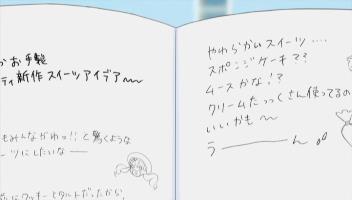 お手製
ティ新作スイーツアイデア〜〜
もみんながわっ!! と驚くような
ーツにしたいなー
にクッキーとタルトだったから、
やわらかいスイーツ‥‥
スポンジケーキ??
ムースかな!?
クリームたっくさん使ってるの
いいかも〜
う―――ん